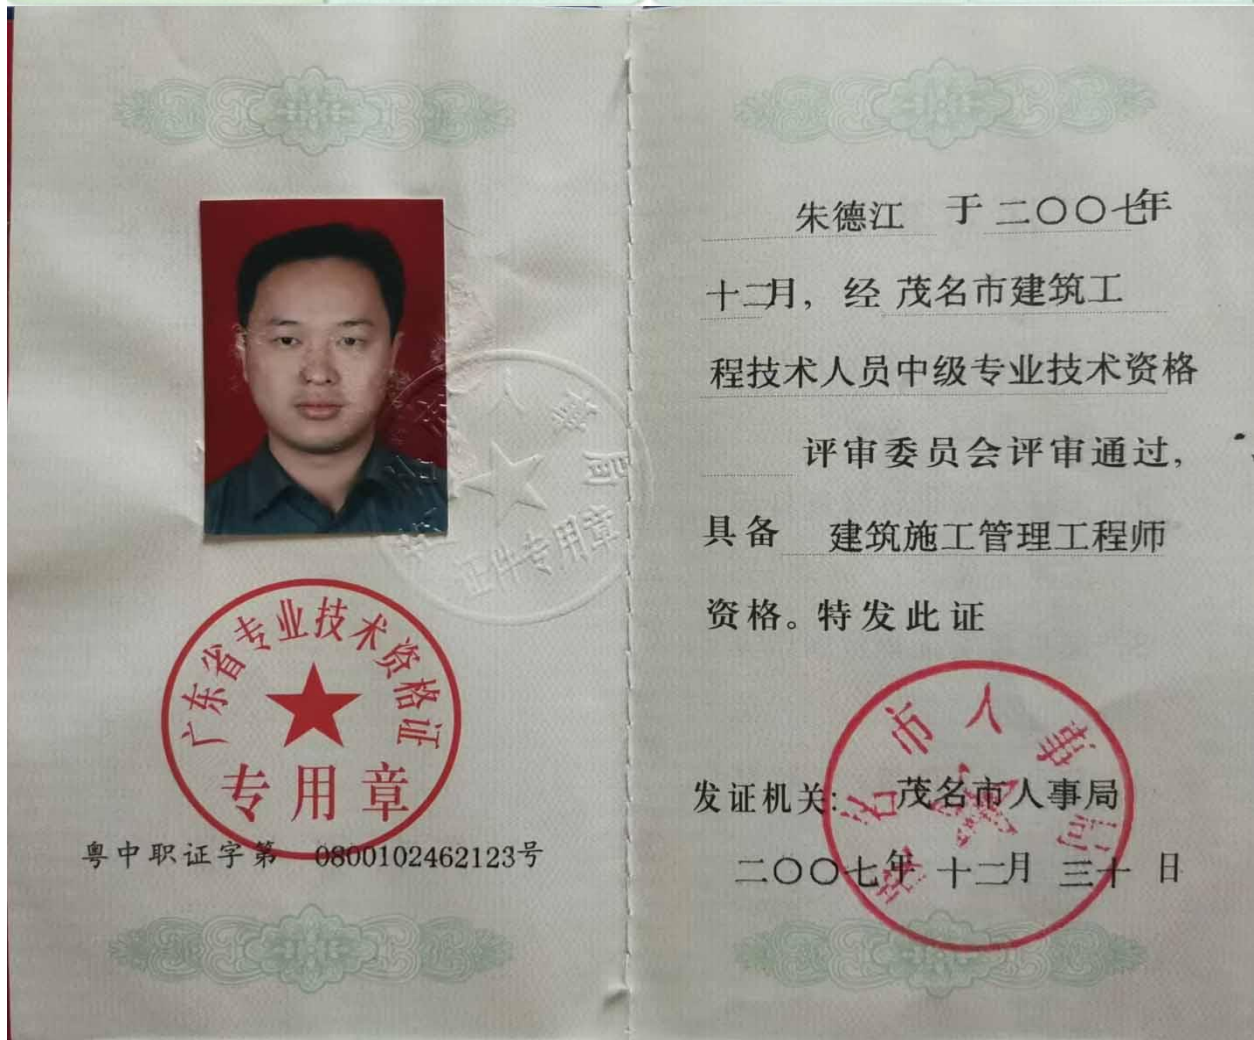 人事局
证件专用章
广东省专业技术资格证
专用章
粤中职证字第 0800102462123号
朱德江 于 二〇〇七年
十二月，经 茂名市建筑工
程技术人员中级专业技术资格
评审委员会评审通过，
具备 建筑施工管理工程师
资格。特发此证
茂名市人事局
发证机关: 茂名市人事局
二〇〇七年 十二月 三十 日